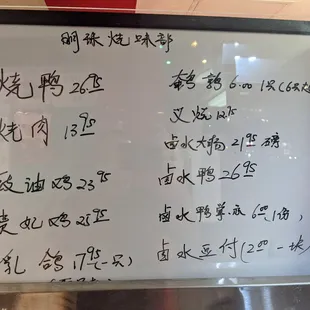 明珠烧味部
烧鸭 26.95
烧肉 13.95
豉油鸡 23.95
贵妃鸡 25.95
乳鸽 17.95(一只)
鹌鹑 6.00 1只(6只
叉烧 12.75
卤水大肠 21.95 磅
卤水鸭 26.95
卤水鸭 6.00 1份,
卤水豆付(2.00 一块)